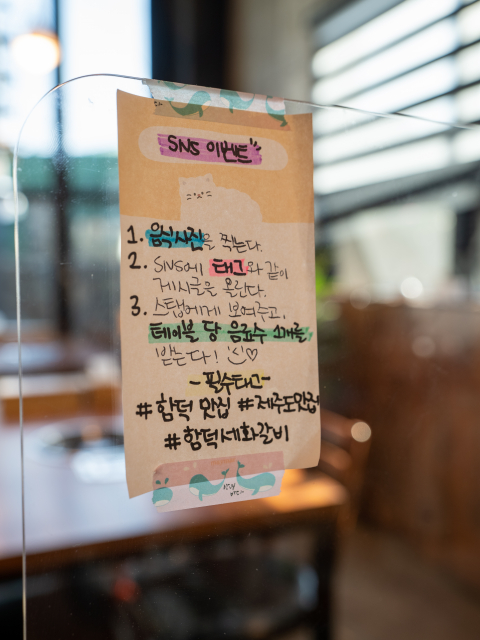 SNS 이벤트
1. 음식사진을 찍는다.
2. SNS에 태그와 같이
게시글을 올린다.
3. 스탭에게 보여주고,
테이블 당 음료수 1개를
받는다!
-필수태그-
#함덕 맛집 #제주도맛집
#함덕세화갈비